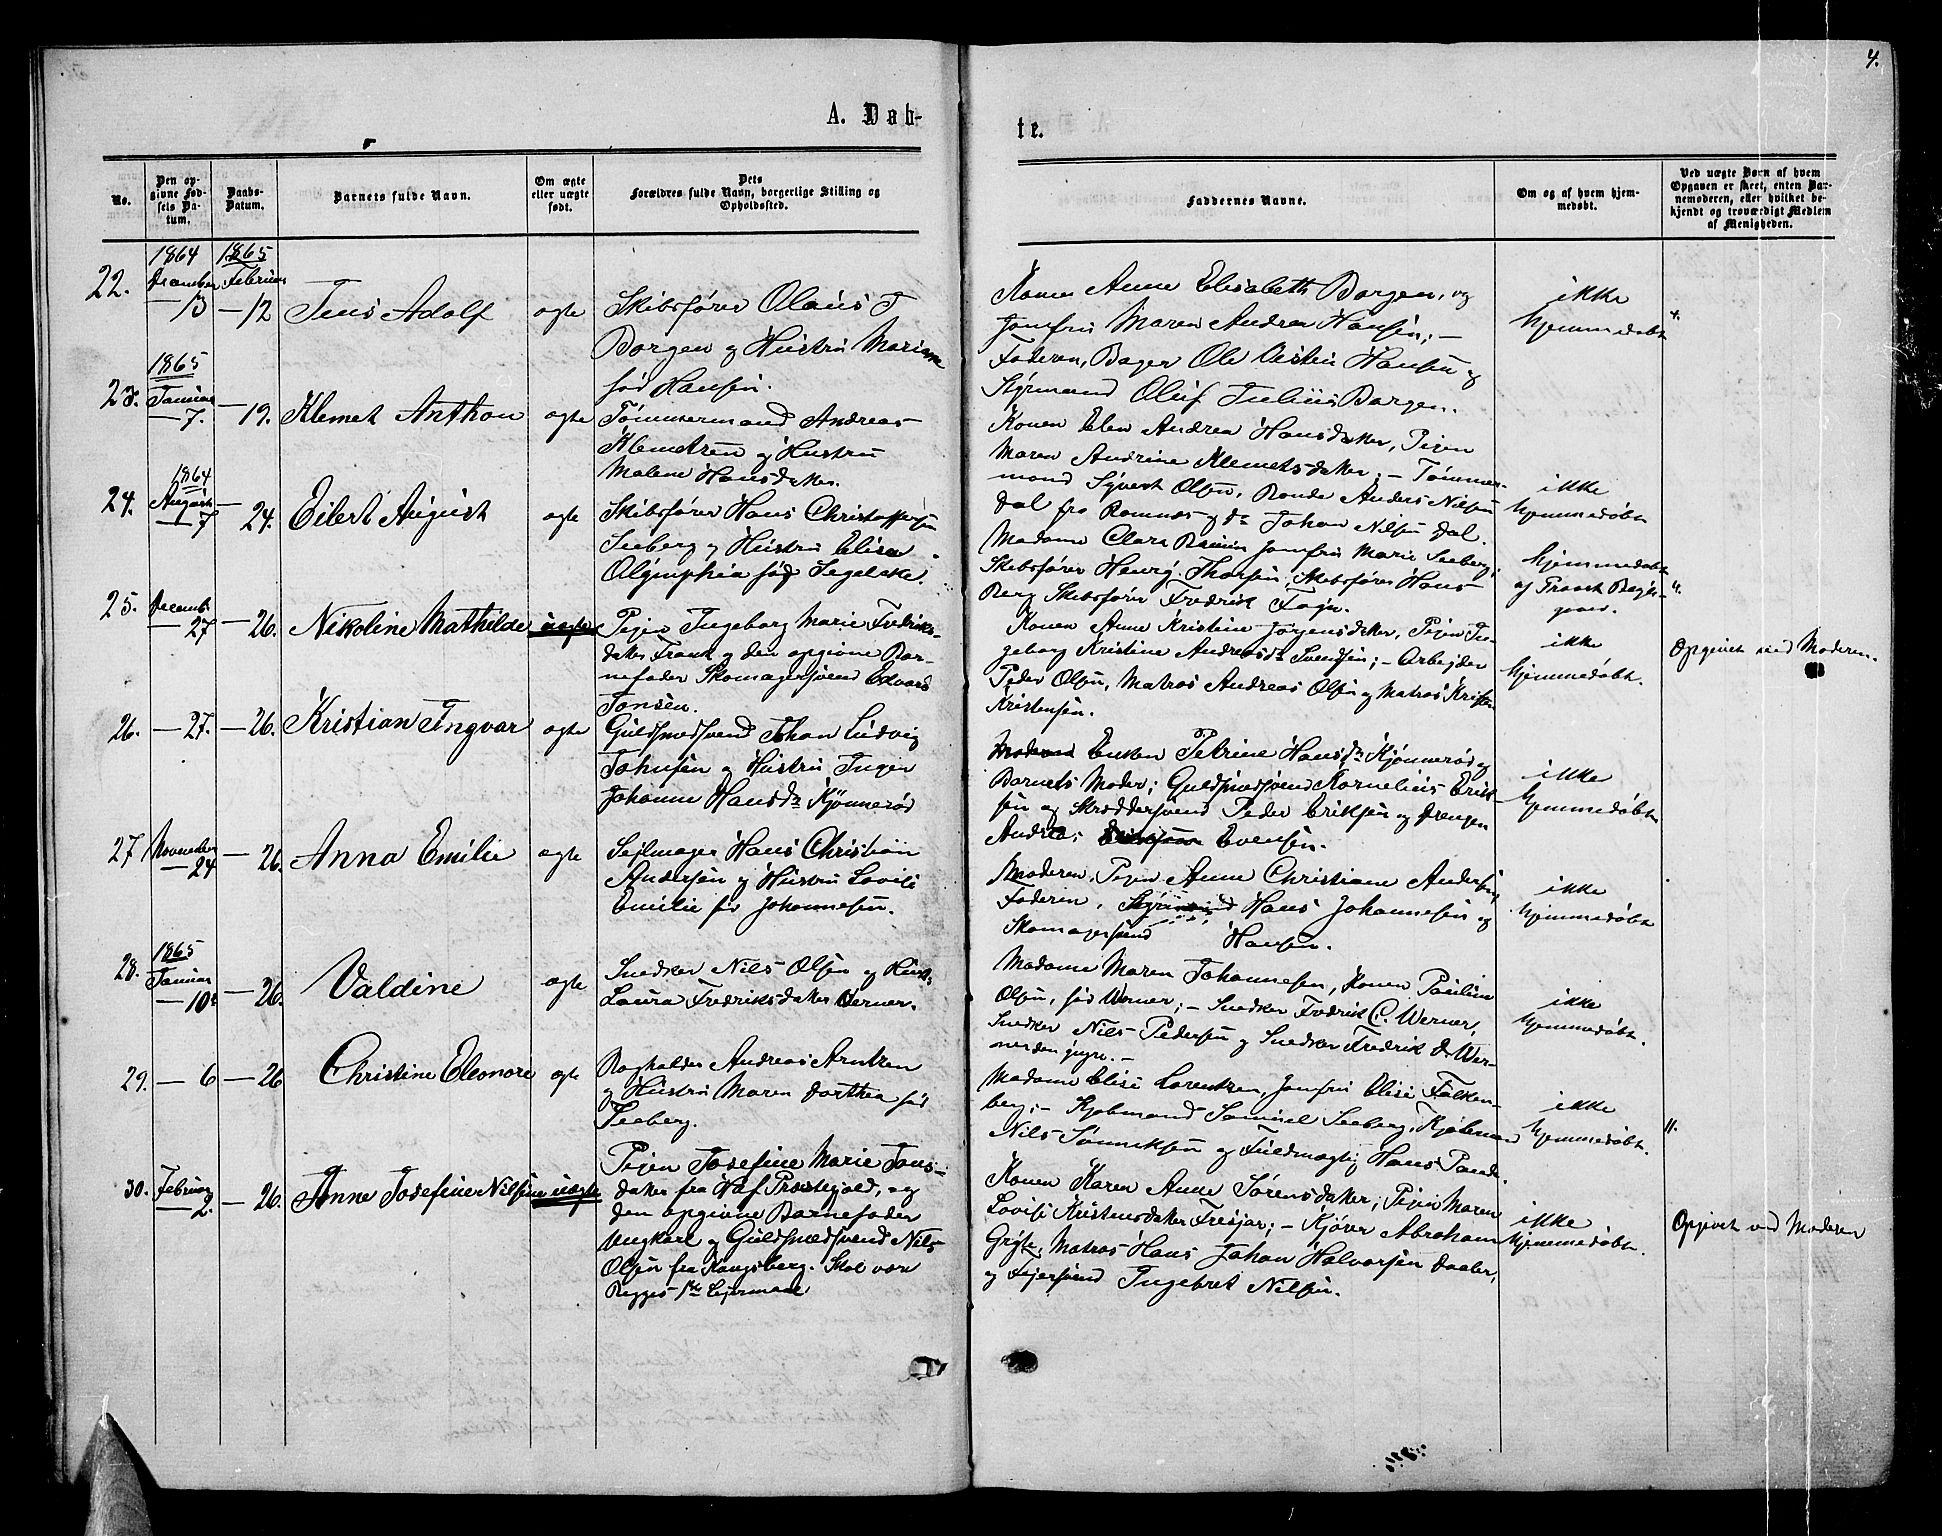 4.
A. Døb-
te.
No.
Den op-
givne Fød-
sels Da-
tum.
Daabs-
Datum.
Barnets fulde Navn.
Om ægte
eller uægte
født.
Dets
Forældres fulde Navn, borgerlige Stilling og
Opholdssted.
Faddernes Navne.
Om og af hvem hjem-
medøbt.
Ved uægte Børn af hvem
Opgaven er skeet, enten Bar-
nemoderen, eller hvilket be-
kjendt og troværdigt Medlem
af Menigheden.
22.
1864
December
— 13
1865
Februar
— 12
Jens Adolf
ægte
Skibsfører Olaus T
Borgen og Hustru Mariane
fød Hansen.
Konen Anne Elisabeth Borgen, og
Jomfru Maren Andrea Hansen; —
Faderen, Bager Ole Østen Hansen og
Styrmand Oluf Julius Borgen.
ikke
hjemmedøbt
23.
1865
Januar
— 7.
— 19.
Klemet Anthon
ægte
Tømmermand Andreas
Klemetsen og Hustru
Malene Hansdatter.
Konen Elen Andrea Hansdatter, Pigen
Maren Andrine Klemetsdatter; — Tømmer-
mand Syvert Olsen, Bonde Anders Nilsen
Dal fra Ramnes og do Johan Nilsen Dal.
ikke
hjemmedøbt
24.
1864
August
— 17
— 24.
Eilert August
ægte
Skibsfører Hans Christoffersen
Seeberg og Hustru Elise
Olymphia fød Segelcke.
Madame Clara Jomfru Marie Seeberg;
Skibsfører Henry Thorsen, Skibsfører Hans
Berg Skibsfører Fredrik Foyn.
hjemmedøbt
af Provst
25.
Decemb.
— 27
— 26.
Nikoline Mathilde
uægte
Pigen Ingeborg Marie Fredriks-
datter Frank og den opgivne Bar-
nefader Skomagersvend Edvard
Jonsen.
Konen Anne Kristine Jørgensdatter, Pigen In-
geborg Kristine Andreasdr Svendsen; — Arbejder
Peder Olsen, Matros Andreas Olsen og Matros Kristen
Kristensen.
ikke
hjemmedøbt.
Opgivet ved Moderen.
26.
— 27.
— 26.
Kristian Ingvar
ægte
Guldsmedsvend Johan Ludvig
Johnsen og Hustru Inger
Johanne Hansdr Kjønnerød
Enken Petrine Hansdr Kjønnerød og
Barnets Moder; Guldsmedsvend Kornelius Erik-
sen og Skræddersvend Peder Eriksen og Drengen
Andreas Evensen.
ikke
hjemmedøbt
27
November
— 24
— 26.
Anna Emilie
ægte
Sejlmager Hans Christian
Andersen og Hustru Lovise
Emilie fød Johannesen.
Moderen, Pigen Anne Christiane Andersen,
Faderen, Styrmand Hans Johannesen og
Skomagersvend Hansen.
ikke
hjemmedøbt
28.
1865
Januar
— 10.
— 26.
Valdine
ægte
Snedker Nils Olsen og Hust.
Laura Fredriksdatter Werner.
Madame Maren Johannesen, Konen Pauline
Olsen, fød Werner; — Snedker Fredrik C. Werner,
Snedker Nils Pedersen og Snedker Fredrik D. Wer-
ner den yngre. —
ikke
hjemmedøbt.
29.
— 6
— 26
Christine Eleonore
ægte
Bogholder Andreas Arntzen
og Hustru Maren Dorthea fød
Seeberg.
Madame Elise Lorentzen, Jomfru Elise Falken-
berg; — Kjøbmand Samuel Seeberg, Kjøbmand
Nils Sønniksen og Fuldmægtig Hans
ikke
hjemmedøbt.
30.
Februar
— 2.
— 26.
Anne Josefine Nilsine
uægte
Pigen Josefine Marie Jons-
datter fra Hof Præstegjeld, og
den opgivne Barnefader
Ungkarl og Guldsmedsvend Nils
Olsen fra Kongsberg. Skal være
Begges 1ste Lejermaal
Konen Karen Anne Sørensdatter, Pigen Maren
Lovise Kristensdatter Freijar; — Kjører Abraham
Gryte, Matros Hans Johan Halvorsen Daaler,
og Fejersvend Ingebret Nilsen.
ikke
hjemmedøbt.
Opgivet ved Moderen